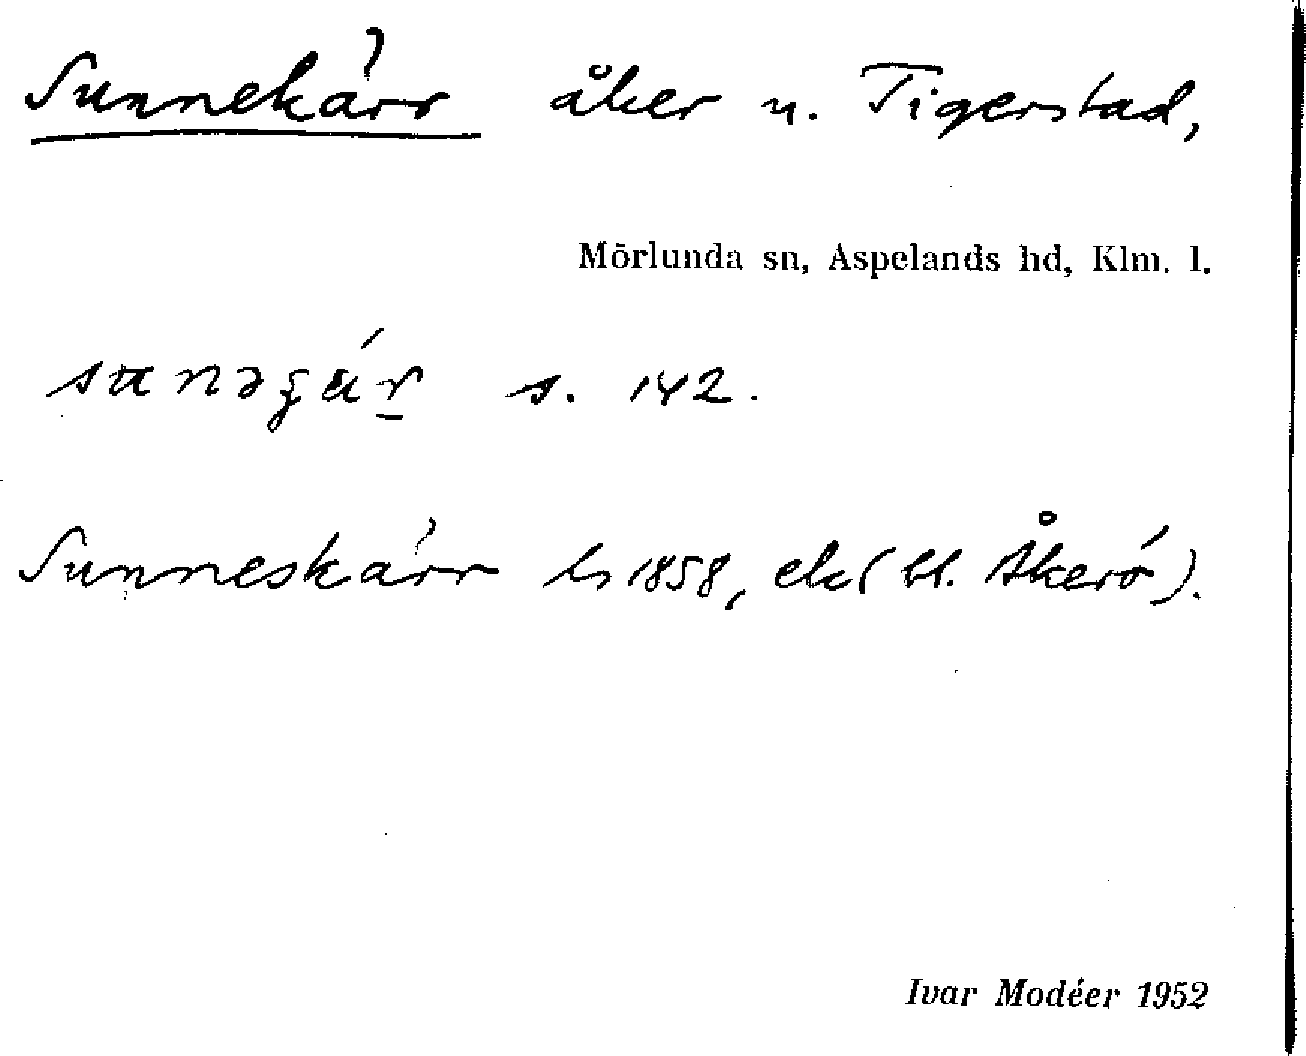 Sunnekärr åker n. Tigerstad,
Mörlunda sn, Aspelands hd, Klm. l.
s. 142.
Sunneskärr ls 1858, ek (bl. Åkerö).
Ivar Modéer 1952